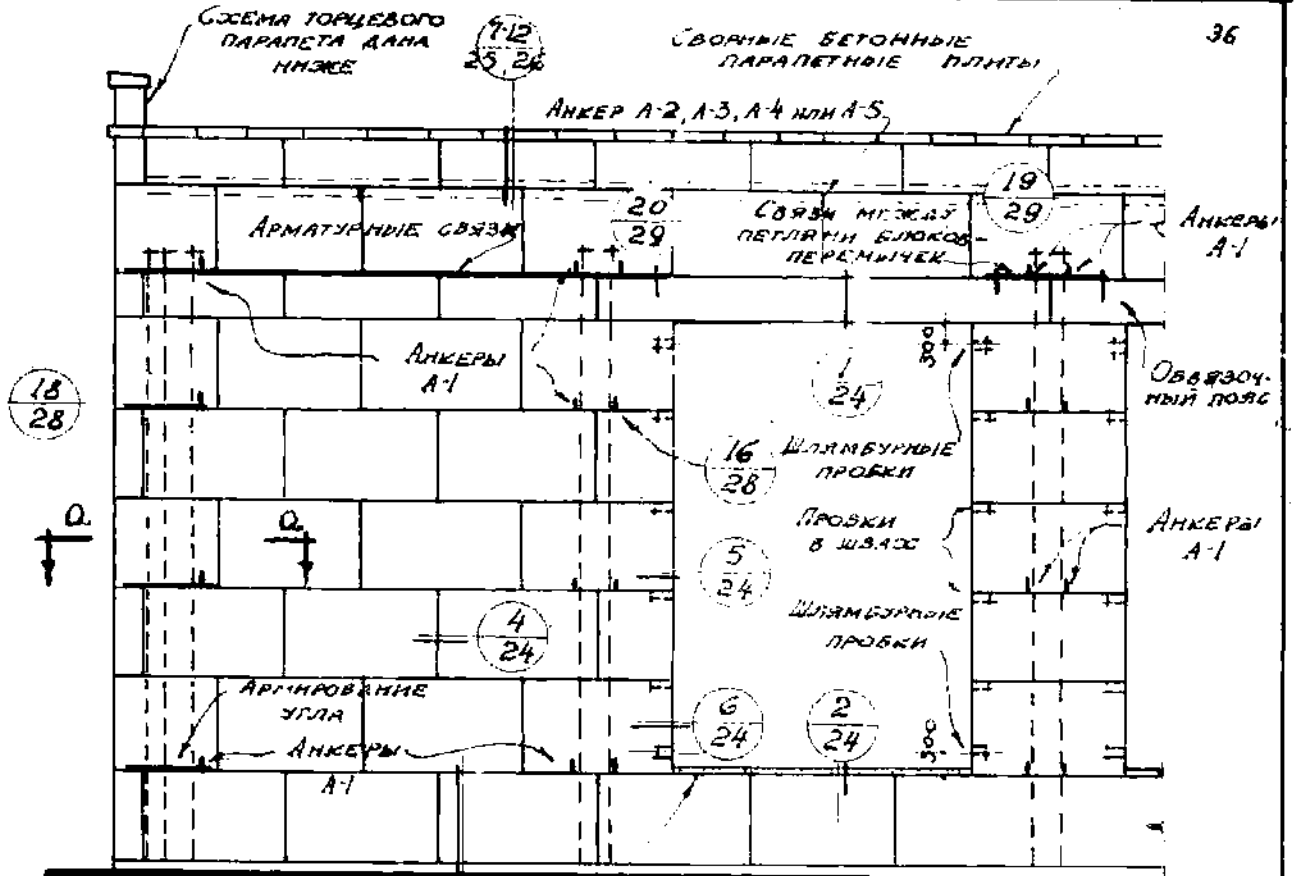 36
СХЕМА ТОРЦЕВОГО
ПАРАПЕТА ДАНА
НИЖЕ
7-12
25 26
СБОРНЫЕ БЕТОННЫЕ
ПАРАПЕТНЫЕ ПЛИТЫ
АНКЕР А-2, А-3, А-4 ИЛИ А-5
АРМАТУРНЫЕ СВЯЗИ
20
29
СВЯЗИ МЕЖДУ
ПЕТЛЯМИ БЛОКОВ-
ПЕРЕМЫЧЕК
19
29
АНКЕРЫ
А-1
АНКЕРЫ
А-1
300
1
24
ОБВЯЗОЧ-
НЫЙ ПОЯС
18
28
16
28
ШЛЯМБУРНЫЕ
ПРОБКИ
а
а
ПРОБКИ
В ШВАХ
АНКЕРЫ
А-1
5
24
4
24
ШЛЯМБУРНЫЕ
ПРОБКИ
АРМИРОВАНИЕ
УГЛА
6
24
2
24
300
АНКЕРЫ
А-1